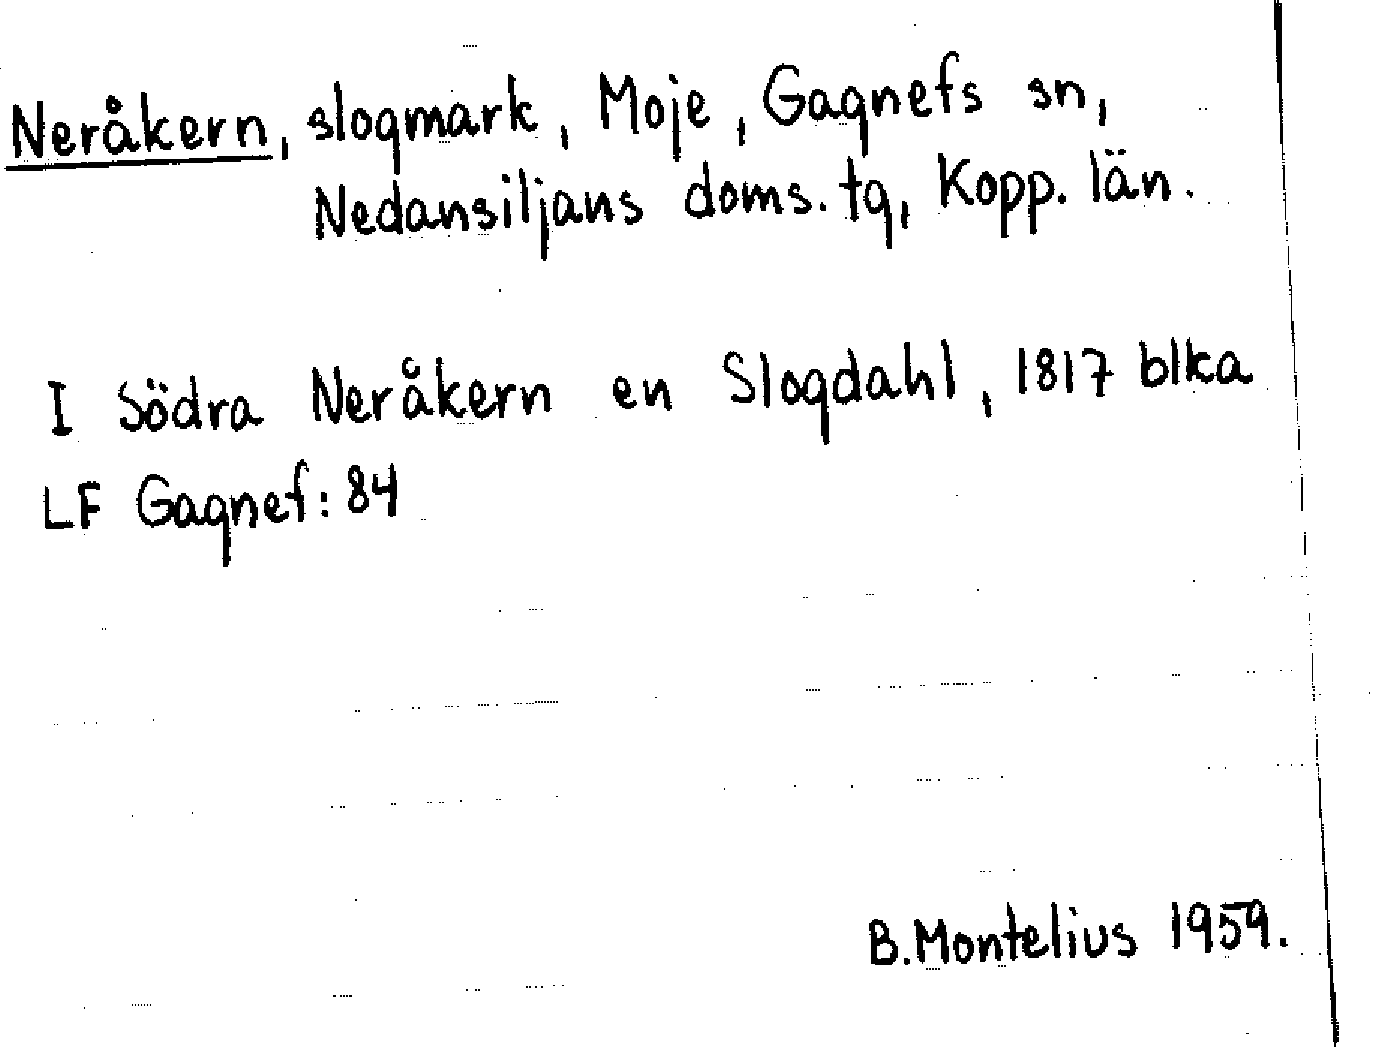 Neråkern, slogmark, Moje, Gagnefs sn,
Nedansiljans doms. tg, Kopp. län.
I Södra Neråkern en Slogdahl, 1817 blka
LF Gagnef: 84
B. Montelius 1959.